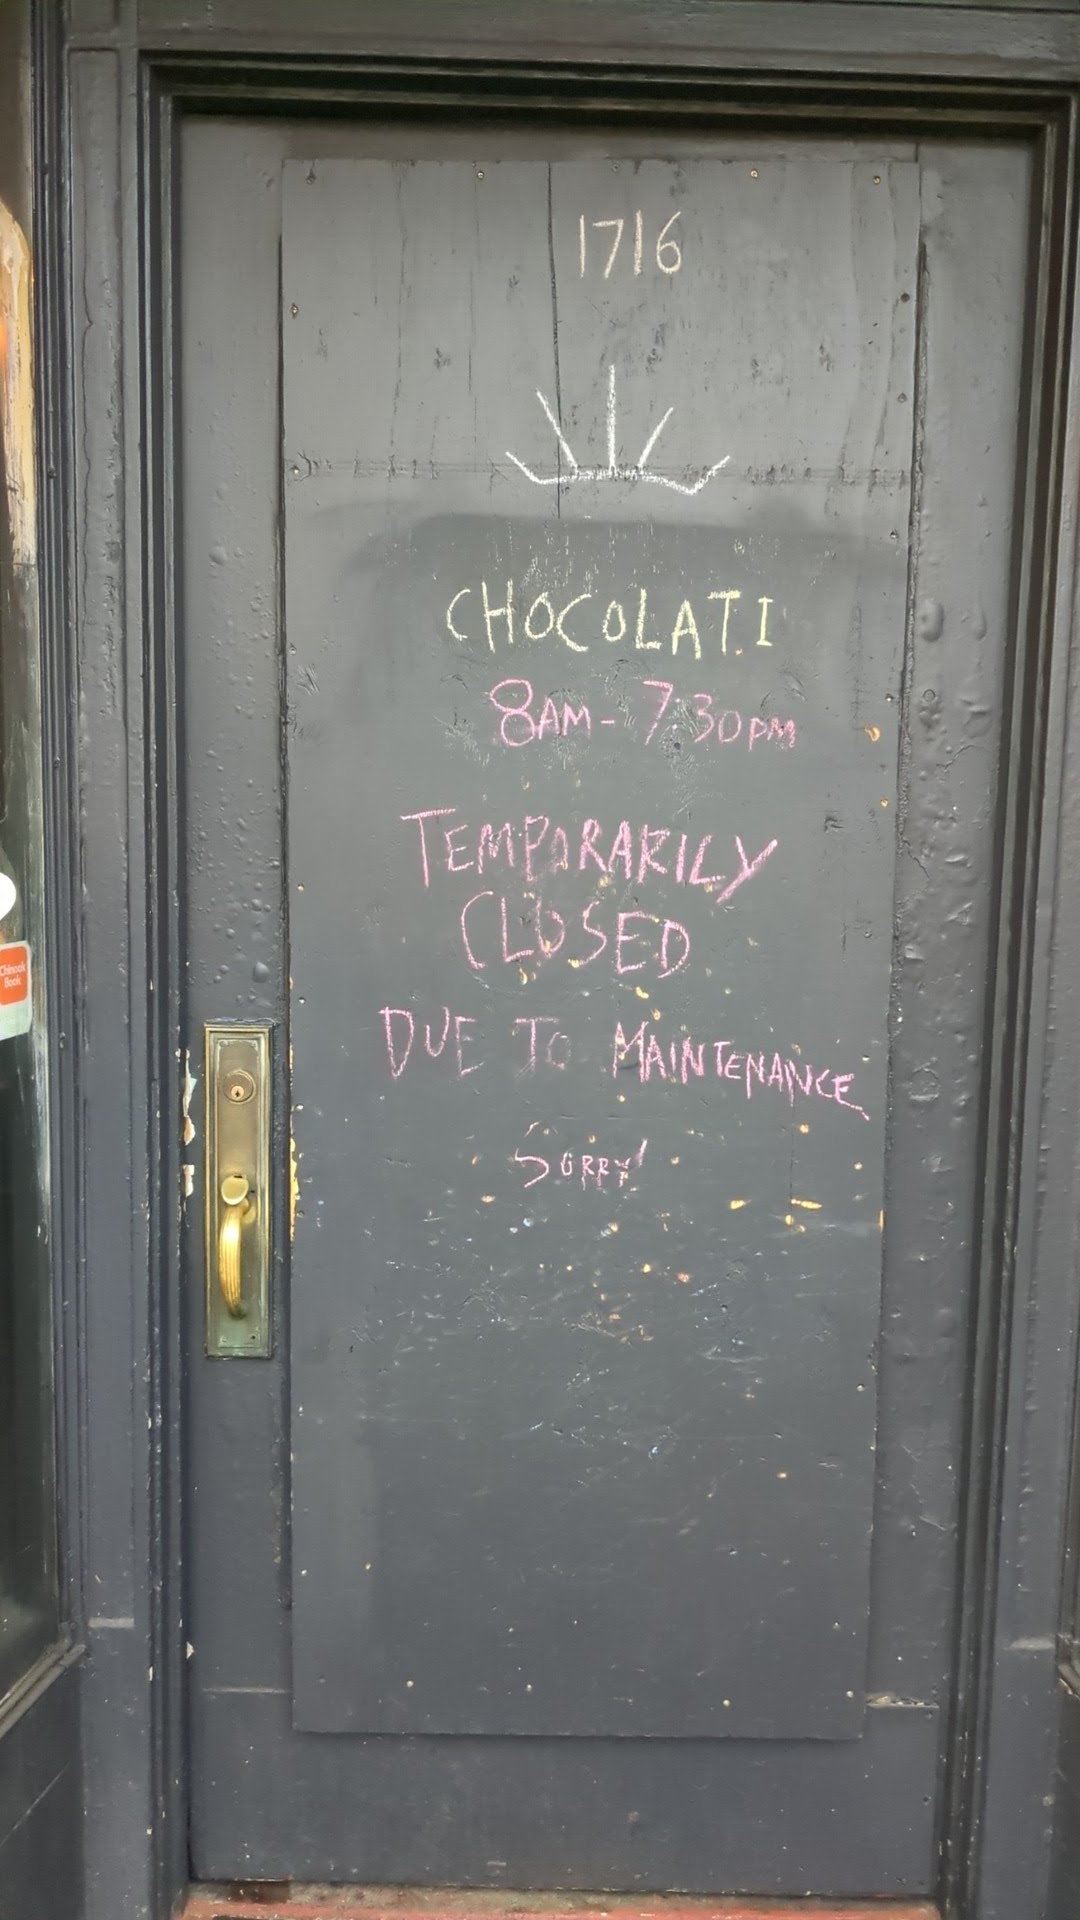 1716
CHOCOLATI
8AM - 7:30PM
TEMPORARILY
CLOSED
DUE TO MAINTENANCE
SORRY!
Chinook
Book